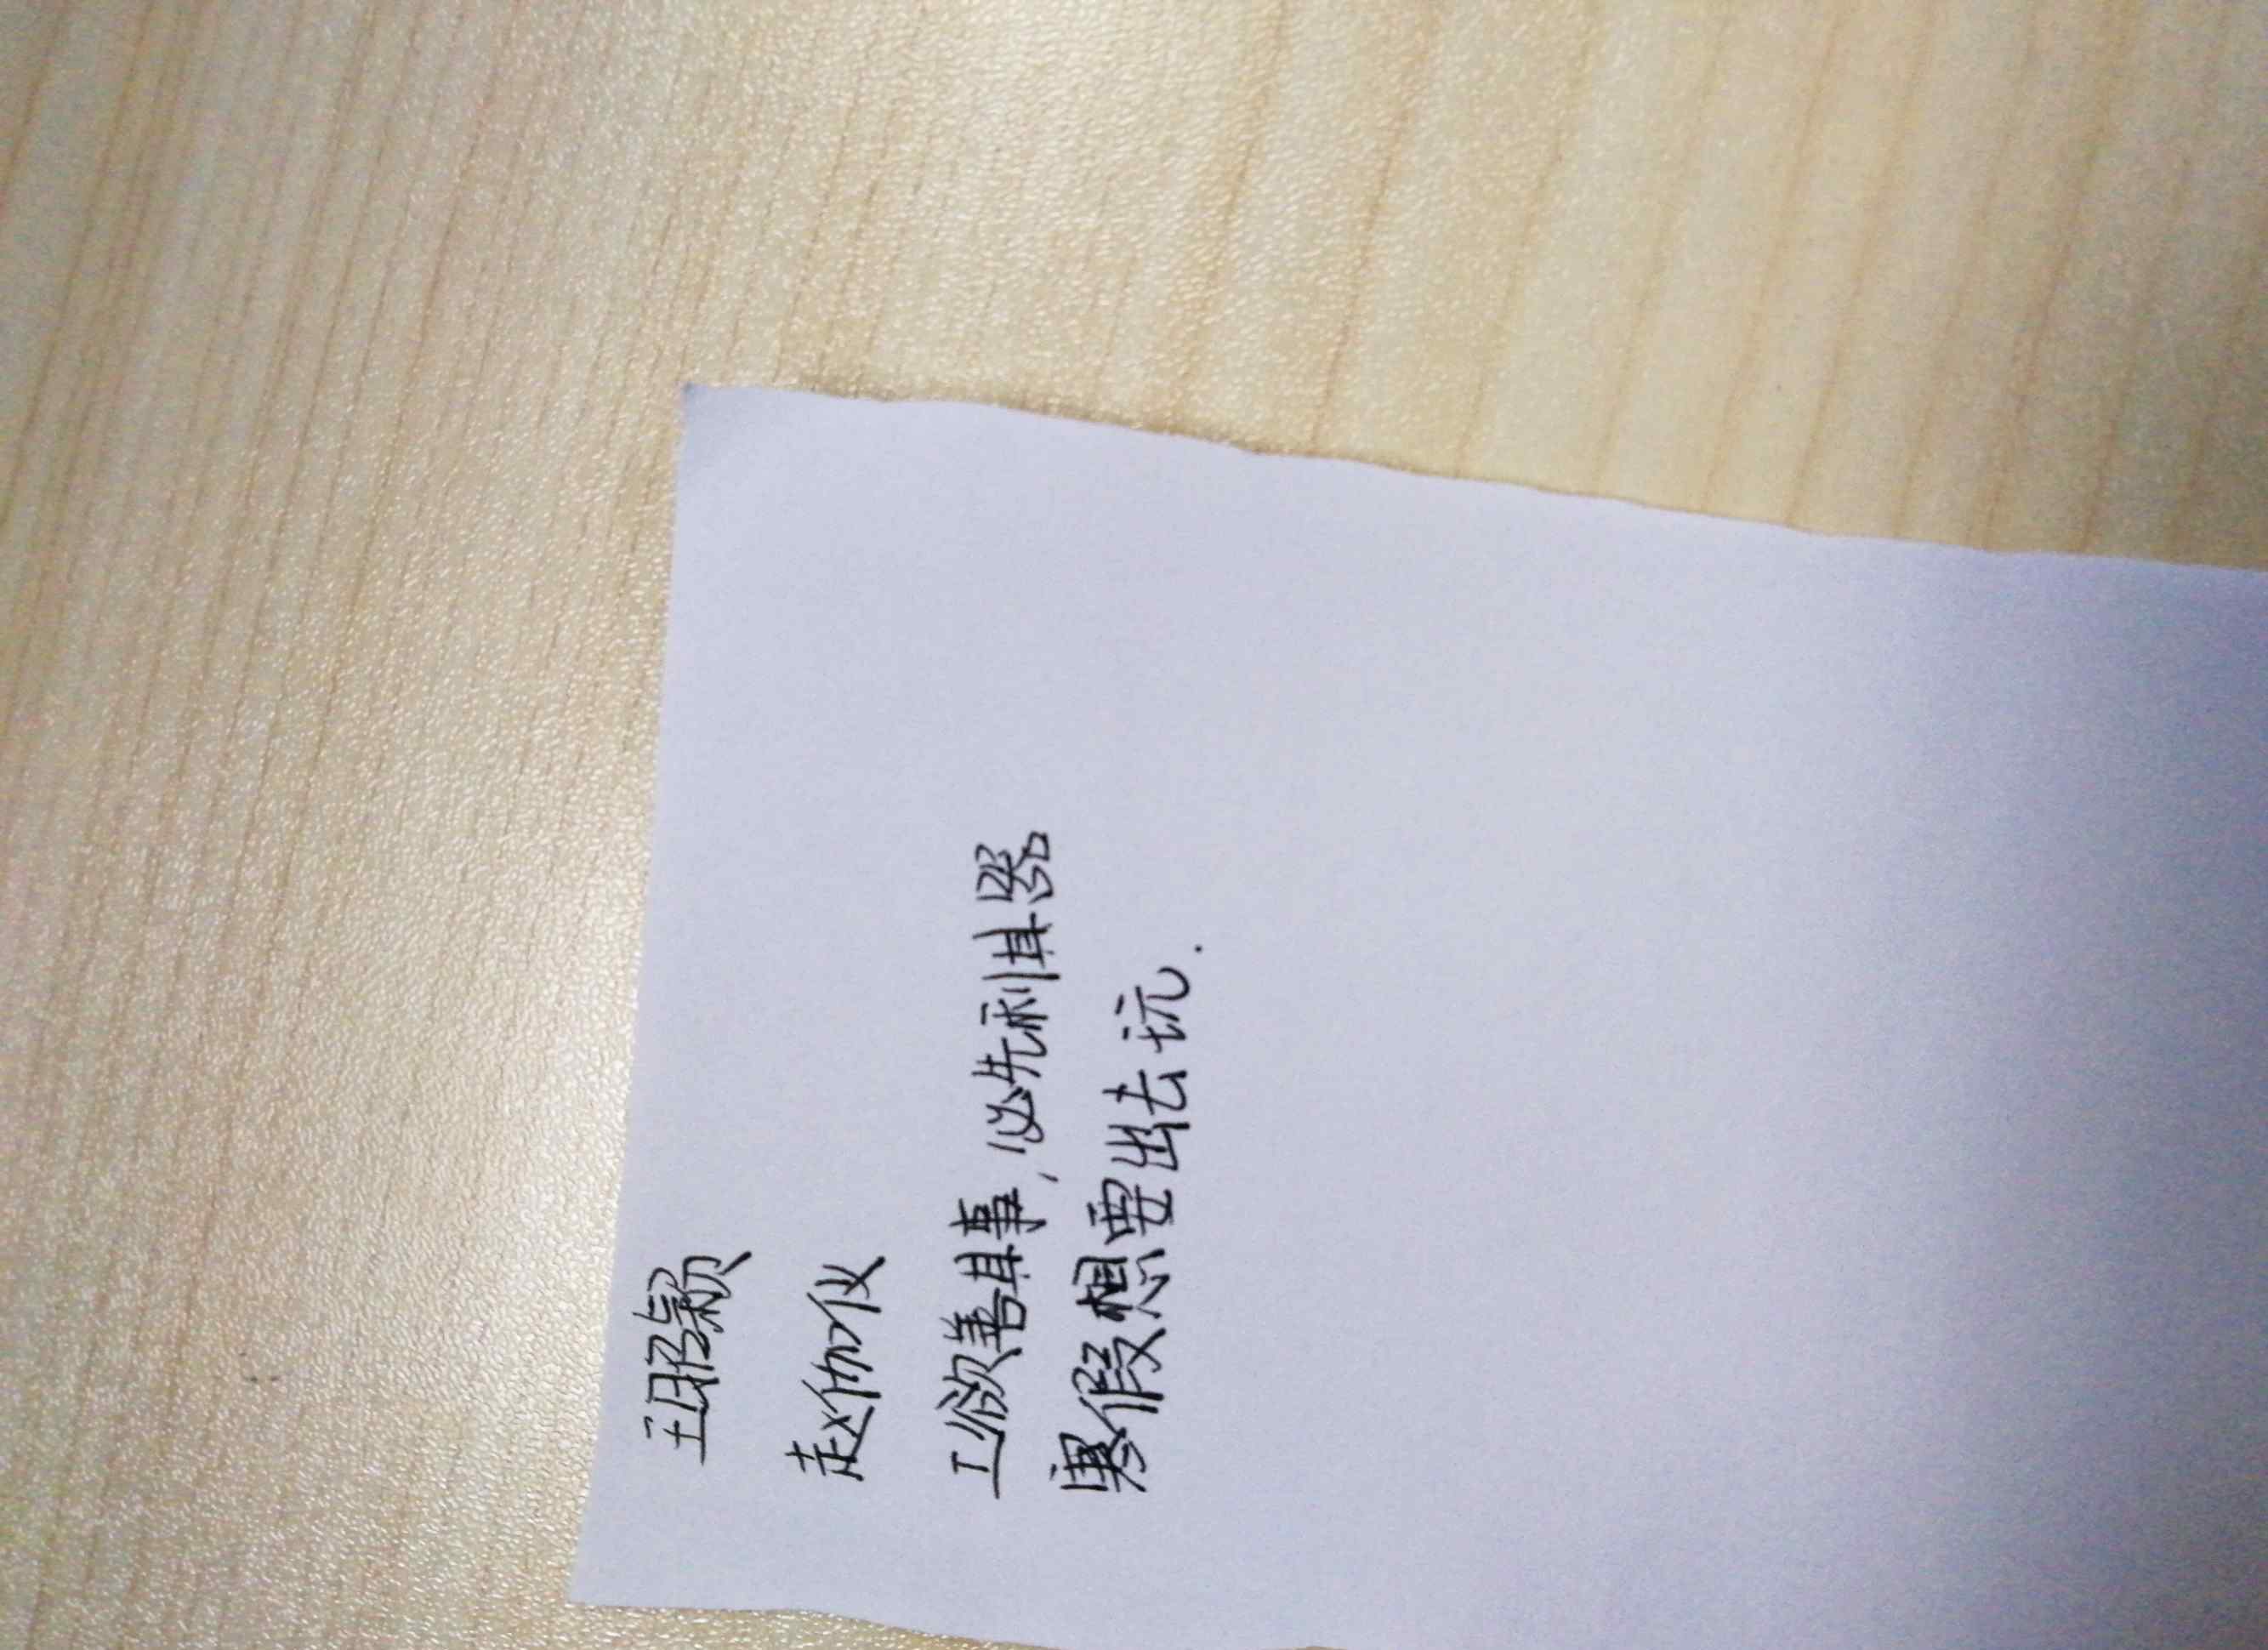 王昭颖
赵伽仪
工欲善其事,必先利其器
寒假想要出去玩.